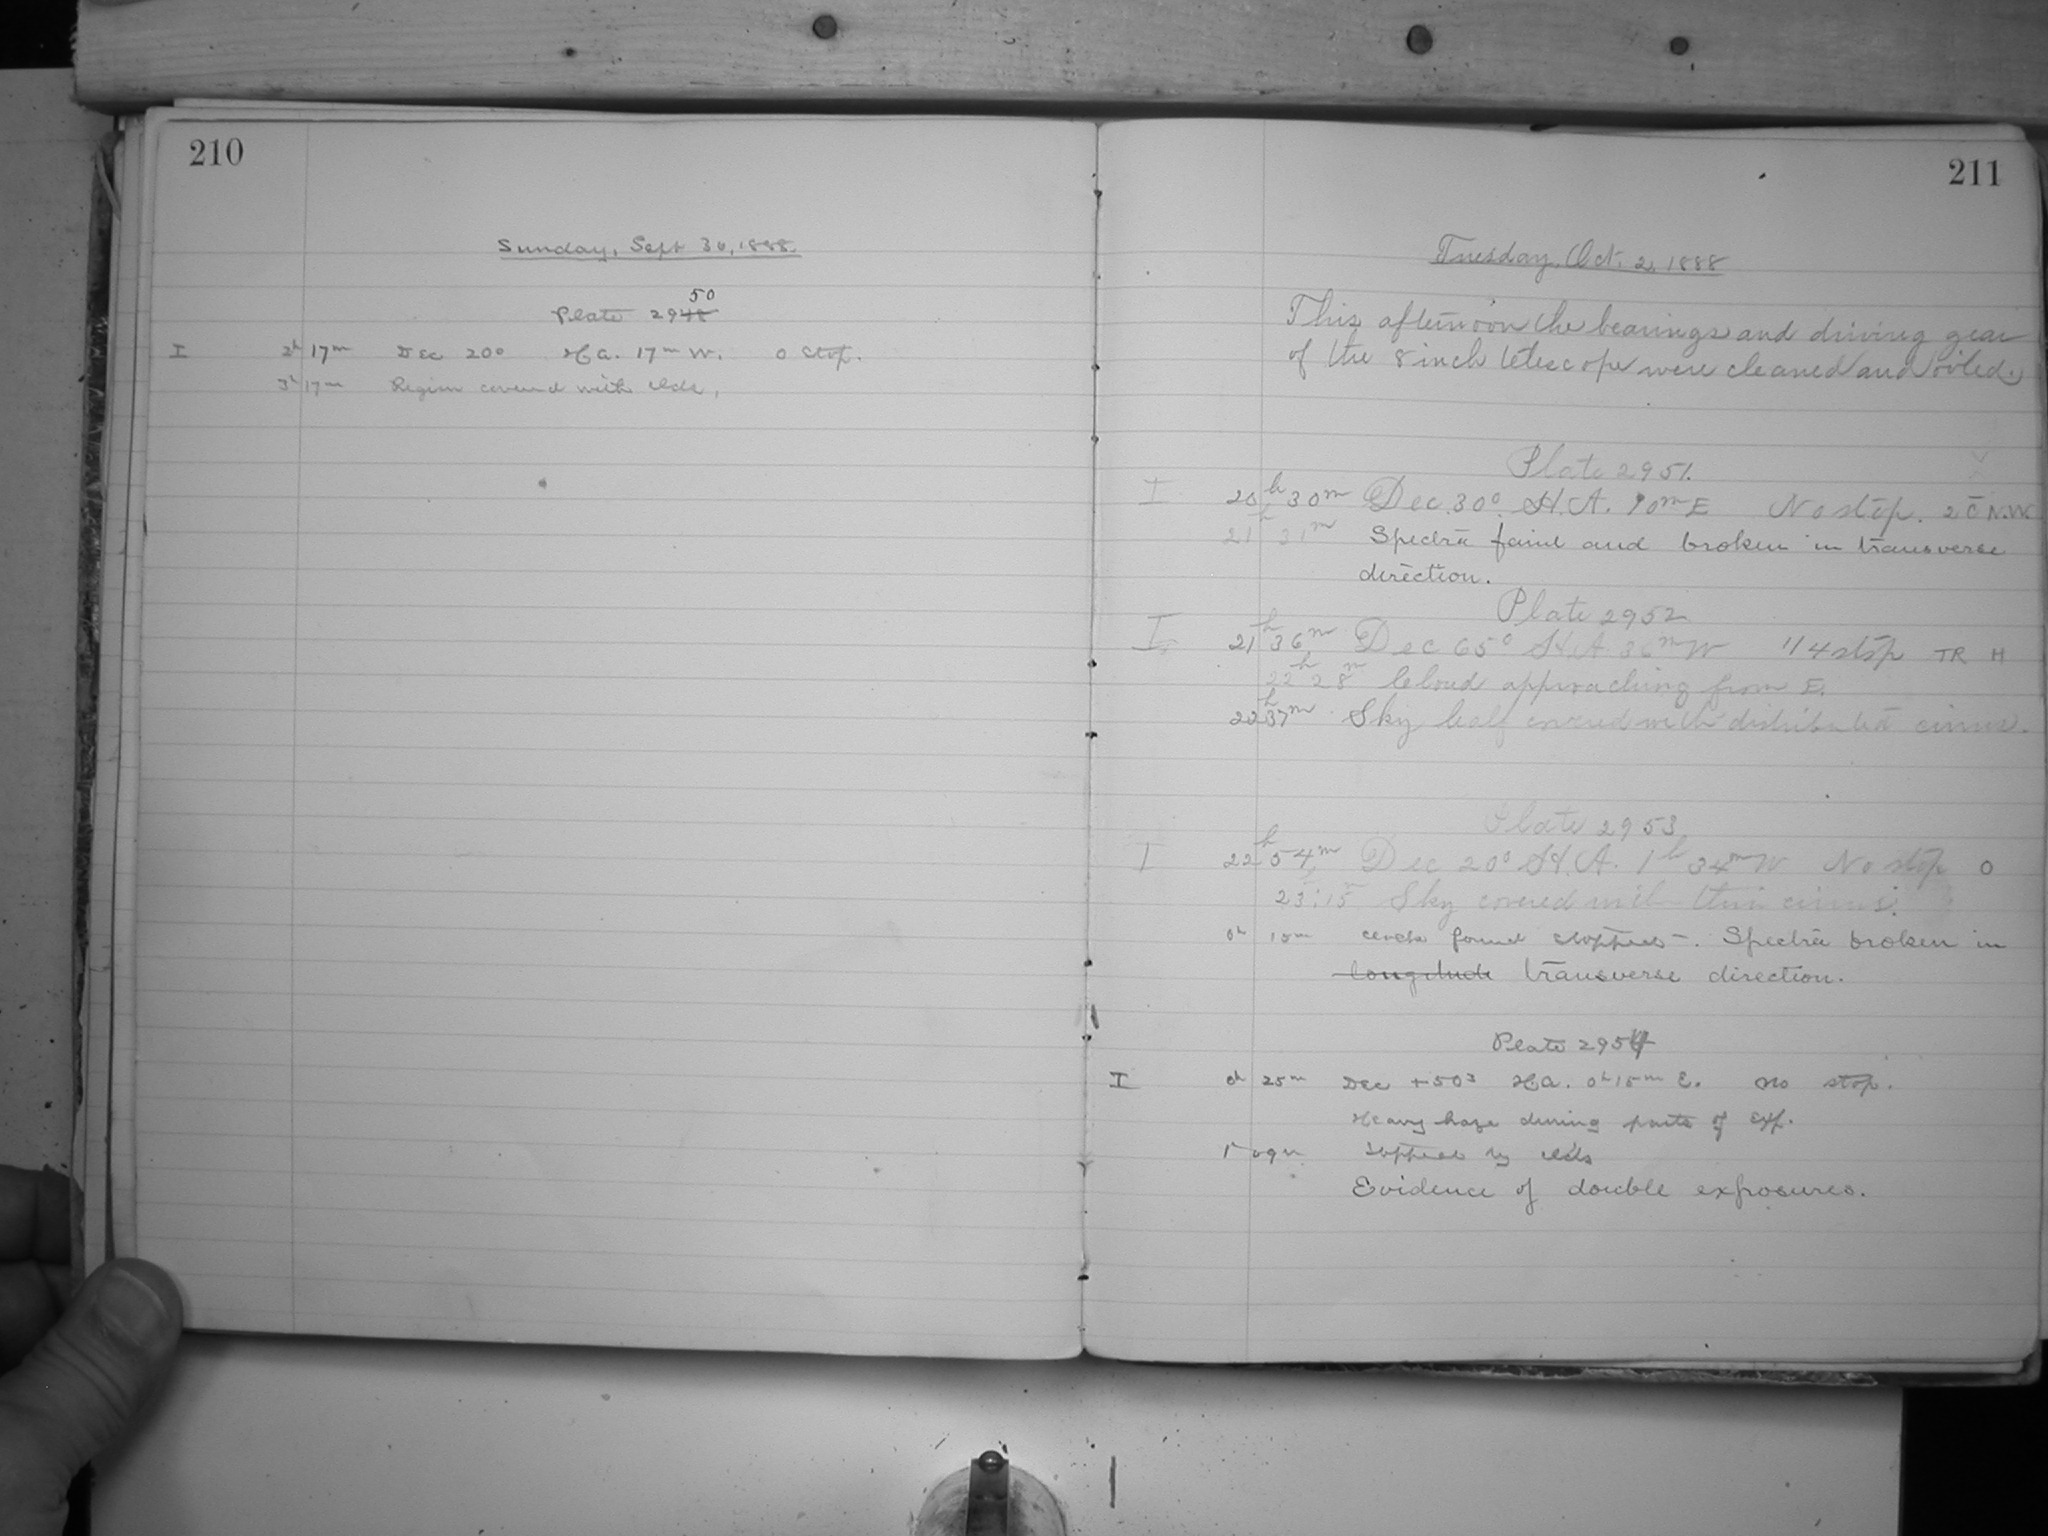 210
Sunday, Sept 30, 1888.
50
Plate 2948
I 2h 17m Dec 20° H.A. 17m W. 0 Stop.
3h 17m Region covered with clds.
211
Tuesday, Oct. 2, 1888
This afternoon the bearings and driving gear
of the 8 inch telescope were cleaned and oiled.
Plate 2951.
I 20h 30m Dec. 30°. H.A. 10m E No stop.
21h 31m Spectra faint and broken in transverse
direction.
Plate 2952
I 21h 36m Dec 65° H.A. 36m W 1/4 stop TR H
22h 28m Cloud approaching from E.
22h 37m Sky half covered with distributed cirrus.
Plate 2953
I 22h 54m Dec 20° H.A. 1h 34m W No stop 0
23:15 Sky covered with thin cirrus.
0h 15m clock found stopped. Spectra broken in
longitude transverse direction.
Plate 2954
I 0h 25m Dec +50° H.A. 0h 15m E. no stop.
Heavy haze during parts of exp.
1h 09m Stopped by clds
Evidence of double exposures.